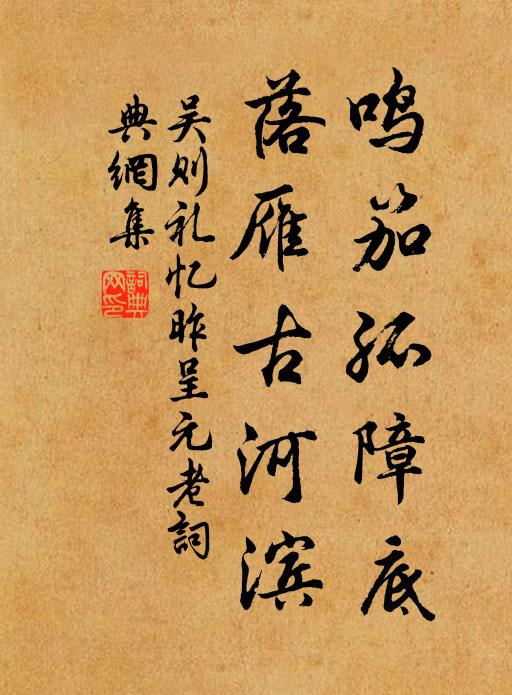 鸣笳孤障底
落雁古河滨
吴则礼忆昨呈元老詞
典網集
詞典网印